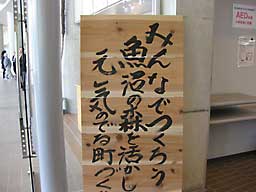 みんなでつくろう
魚沼の森を活かし
元気のでる町づく
AED